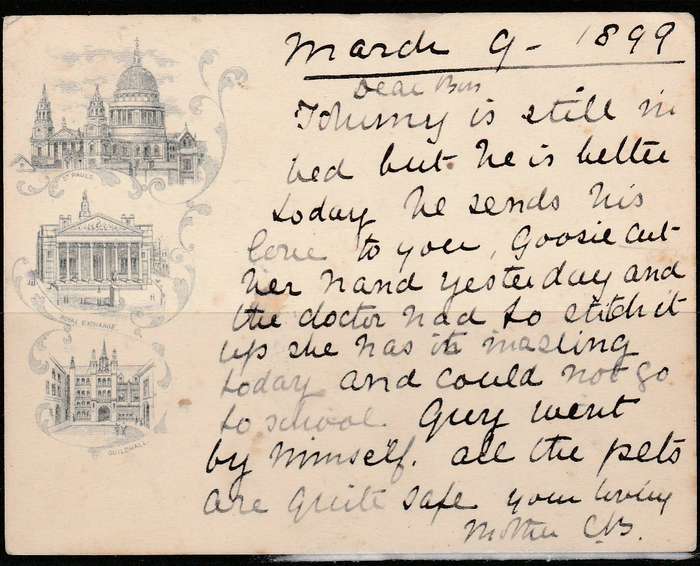 March 9 - 1899
Dear
Tommy is still in
bed but he is better
today he sends his
love to you, Goosie cut
her hand yesterday and
the doctor had to stitch it
up she has it in a sling
today and could not go
to school. Guy went
by himself. all the pets
are quite safe your loving
Mother
ST PAULS
ROYAL EXCHANGE
GUILDHALL